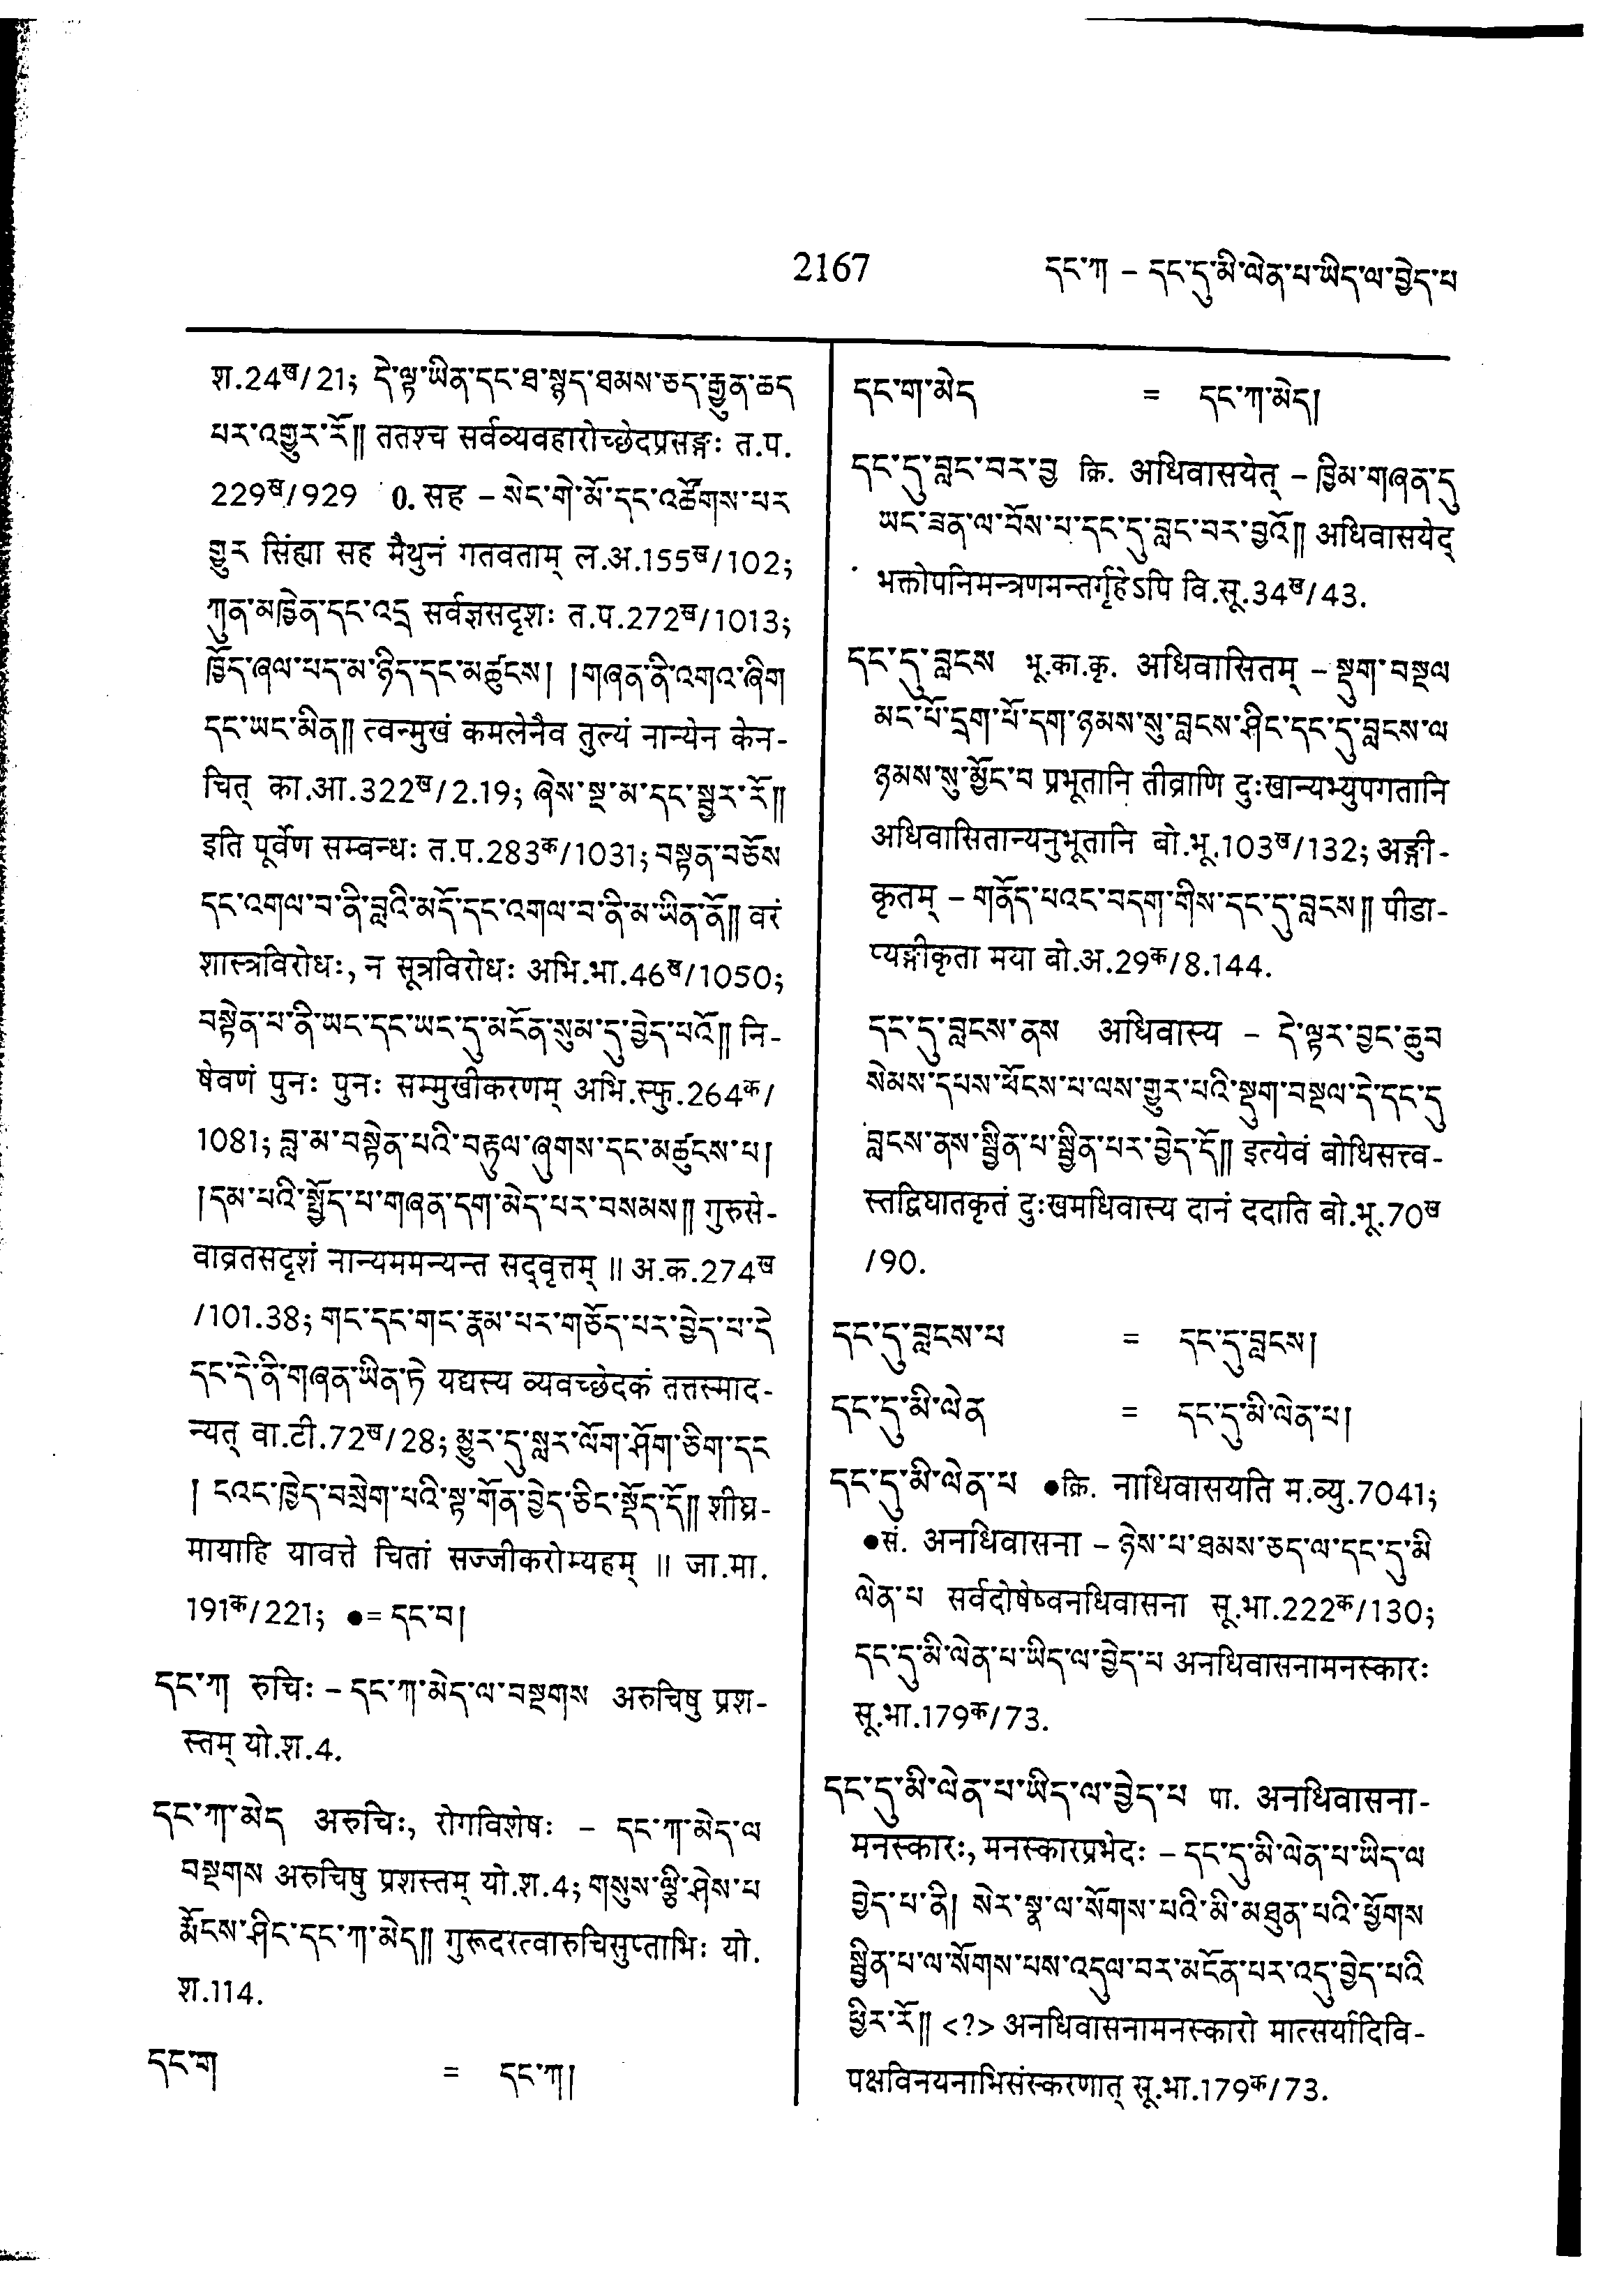 2167
དང་ཀ – དང་དུ་མི་ལེན་པ་ཡིད་ལ་བྱེད་པ
श.24ख/21; དེ་ལྟ་ཡིན་དང་ཐ་སྙད་ཐམས་ཅད་རྒྱུན་ཆད
པར་འགྱུར་རོ༎ ततश्च सर्वव्यवहारोच्छेदप्रसङ्गः त.प.
229ख/929 0. सह – སེང་གེ་མོ་དང་འཚོགས་པར
གྱུར सिंह्या सह मैथुनं गतवताम् ल.अ.155ख/102;
ཀུན་མཁྱེན་དང་འདྲ सर्वज्ञसदृशः त.प.272ख/1013;
ཁྱོད་ཞལ་པད་མ་ཉིད་དང་མཚུངས། །གཞན་ནི་འགའ་ཞིག
དང་ཡང་མིན༎ त्वन्मुखं कमलेनैव तुल्यं नान्येन केन-
चित् का.आ.322ख/2.19; ཞེས་སྔ་མ་དང་སྦྱར་རོ༎
इति पूर्वेण सम्बन्धः त.प.283क/1031; བསྟན་བཅོས
དང་འགལ་བ་ནི་བླའི་མདོ་དང་འགལ་བ་ནི་མ་ཡིན་ནོ༎ वरं
शास्त्रविरोधः, न सूत्रविरोधः अभि.भा.46ख/1050;
བསྟེན་པ་ནི་ཡང་དང་ཡང་དུ་མངོན་སུམ་དུ་བྱེད་པའོ༎ नि-
षेवणं पुनः पुनः सम्मुखीकरणम् अभि.स्फु.264क/
1081; བླ་མ་བསྟེན་པའི་བརྟུལ་ཞུགས་དང་མཚུངས་པ།
།དམ་པའི་སྤྱོད་པ་གཞན་དག་མེད་པར་བསམས༎ गुरुसे-
वाव्रतसदृशं नान्यममन्यन्त सद्वृत्तम् ॥ अ.क.274ख
/101.38; གང་དང་གང་རྣམ་པར་གཅོད་པར་བྱེད་པ་དེ
དང་དེ་ནི་གཞན་ཡིན་ཏེ यद्यस्य व्यवच्छेदकं तत्तस्माद-
न्यत् वा.टी.72ख/28; མྱུར་དུ་སླར་ལོག་ཤོག་ཅིག་དང
། ངའང་ཁྱེད་བསྲེག་པའི་སྟ་གོན་བྱེད་ཅིང་སྡོད་དོ༎ शीघ्र-
मायाहि यावत्ते चितां सज्जीकरोम्यहम् ॥ जा.मा.
191क/221; ●= དང་བ།
དང་ཀ रुचिः – དང་ཀ་མེད་ལ་བསྔགས अरुचिषु प्रश-
स्तम् यो.श.4.
དང་ཀ་མེད अरुचिः, रोगविशेषः – དང་ཀ་མེད་ལ
བསྔགས अरुचिषु प्रशस्तम् यो.श.4; གསུས་ལྕི་ཤེས་པ
རྨོངས་ཤིང་དང་ཀ་མེད༎ गुरूदरत्वारुचिसुप्ताभिः यो.
श.114.
དང་ག = དང་ཀ།
དང་ག་མེད = དང་ཀ་མེད།
དང་དུ་བླང་བར་བྱ क्रि. अधिवासयेत् – ཁྱིམ་གཞན་དུ
ཡང་ཟན་ལ་བོས་པ་དང་དུ་བླང་བར་བྱའོ༎ अधिवासयेद्
भक्तोपनिमन्त्रणमन्तर्गृहेऽपि वि.सू.34ख/43.
དང་དུ་བླངས भू.का.कृ. अधिवासितम् – སྡུག་བསྔལ
མང་པོ་དྲག་པོ་དག་ཉམས་སུ་བླངས་ཤིང་དང་དུ་བླངས་ལ
ཉམས་སུ་མྱོང་བ प्रभूतानि तीव्राणि दुःखान्यभ्युपगतानि
अधिवासितान्यनुभूतानि बो.भू.103ख/132; अङ्गी-
कृतम् – གནོད་པའང་བདག་གིས་དང་དུ་བླངས༎ पीडा-
प्यङ्गीकृता मया बो.अ.29क/8.144.
དང་དུ་བླངས་ནས अधिवास्य – དེ་ལྟར་བྱང་ཆུབ
སེམས་དཔས་ཕོངས་པ་ལས་གྱུར་པའི་སྡུག་བསྔལ་དེ་དང་དུ
བླངས་ནས་སྦྱིན་པ་སྦྱིན་པར་བྱེད་དོ༎ इत्येवं बोधिसत्त्व-
स्तद्विघातकृतं दुःखमधिवास्य दानं ददाति बो.भू.70ख
/90.
དང་དུ་བླངས་པ = དང་དུ་བླངས།
དང་དུ་མི་ལེན = དང་དུ་མི་ལེན་པ།
དང་དུ་མི་ལེན་པ ●क्रि. नाधिवासयति म.व्यु.7041;
●सं. अनधिवासना – ཉེས་པ་ཐམས་ཅད་ལ་དང་དུ་མི
ལེན་པ सर्वदोषेष्वनधिवासना सू.भा.222क/130;
དང་དུ་མི་ལེན་པ་ཡིད་ལ་བྱེད་པ अनधिवासनामनस्कारः
सू.भा.179क/73.
དང་དུ་མི་ལེན་པ་ཡིད་ལ་བྱེད་པ पा. अनधिवासना-
मनस्कारः, मनस्कारप्रभेदः – དང་དུ་མི་ལེན་པ་ཡིད་ལ
བྱེད་པ་ནི། སེར་སྣ་ལ་སོགས་པའི་མི་མཐུན་པའི་ཕྱོགས
སྦྱིན་པ་ལ་སོགས་པས་འདུལ་བར་མངོན་པར་འདུ་བྱེད་པའི
ཕྱིར་རོ༎ <?> अनधिवासनामनस्कारो मात्सर्यादिवि-
पक्षविनयनाभिसंस्करणात् सू.भा.179क/73.